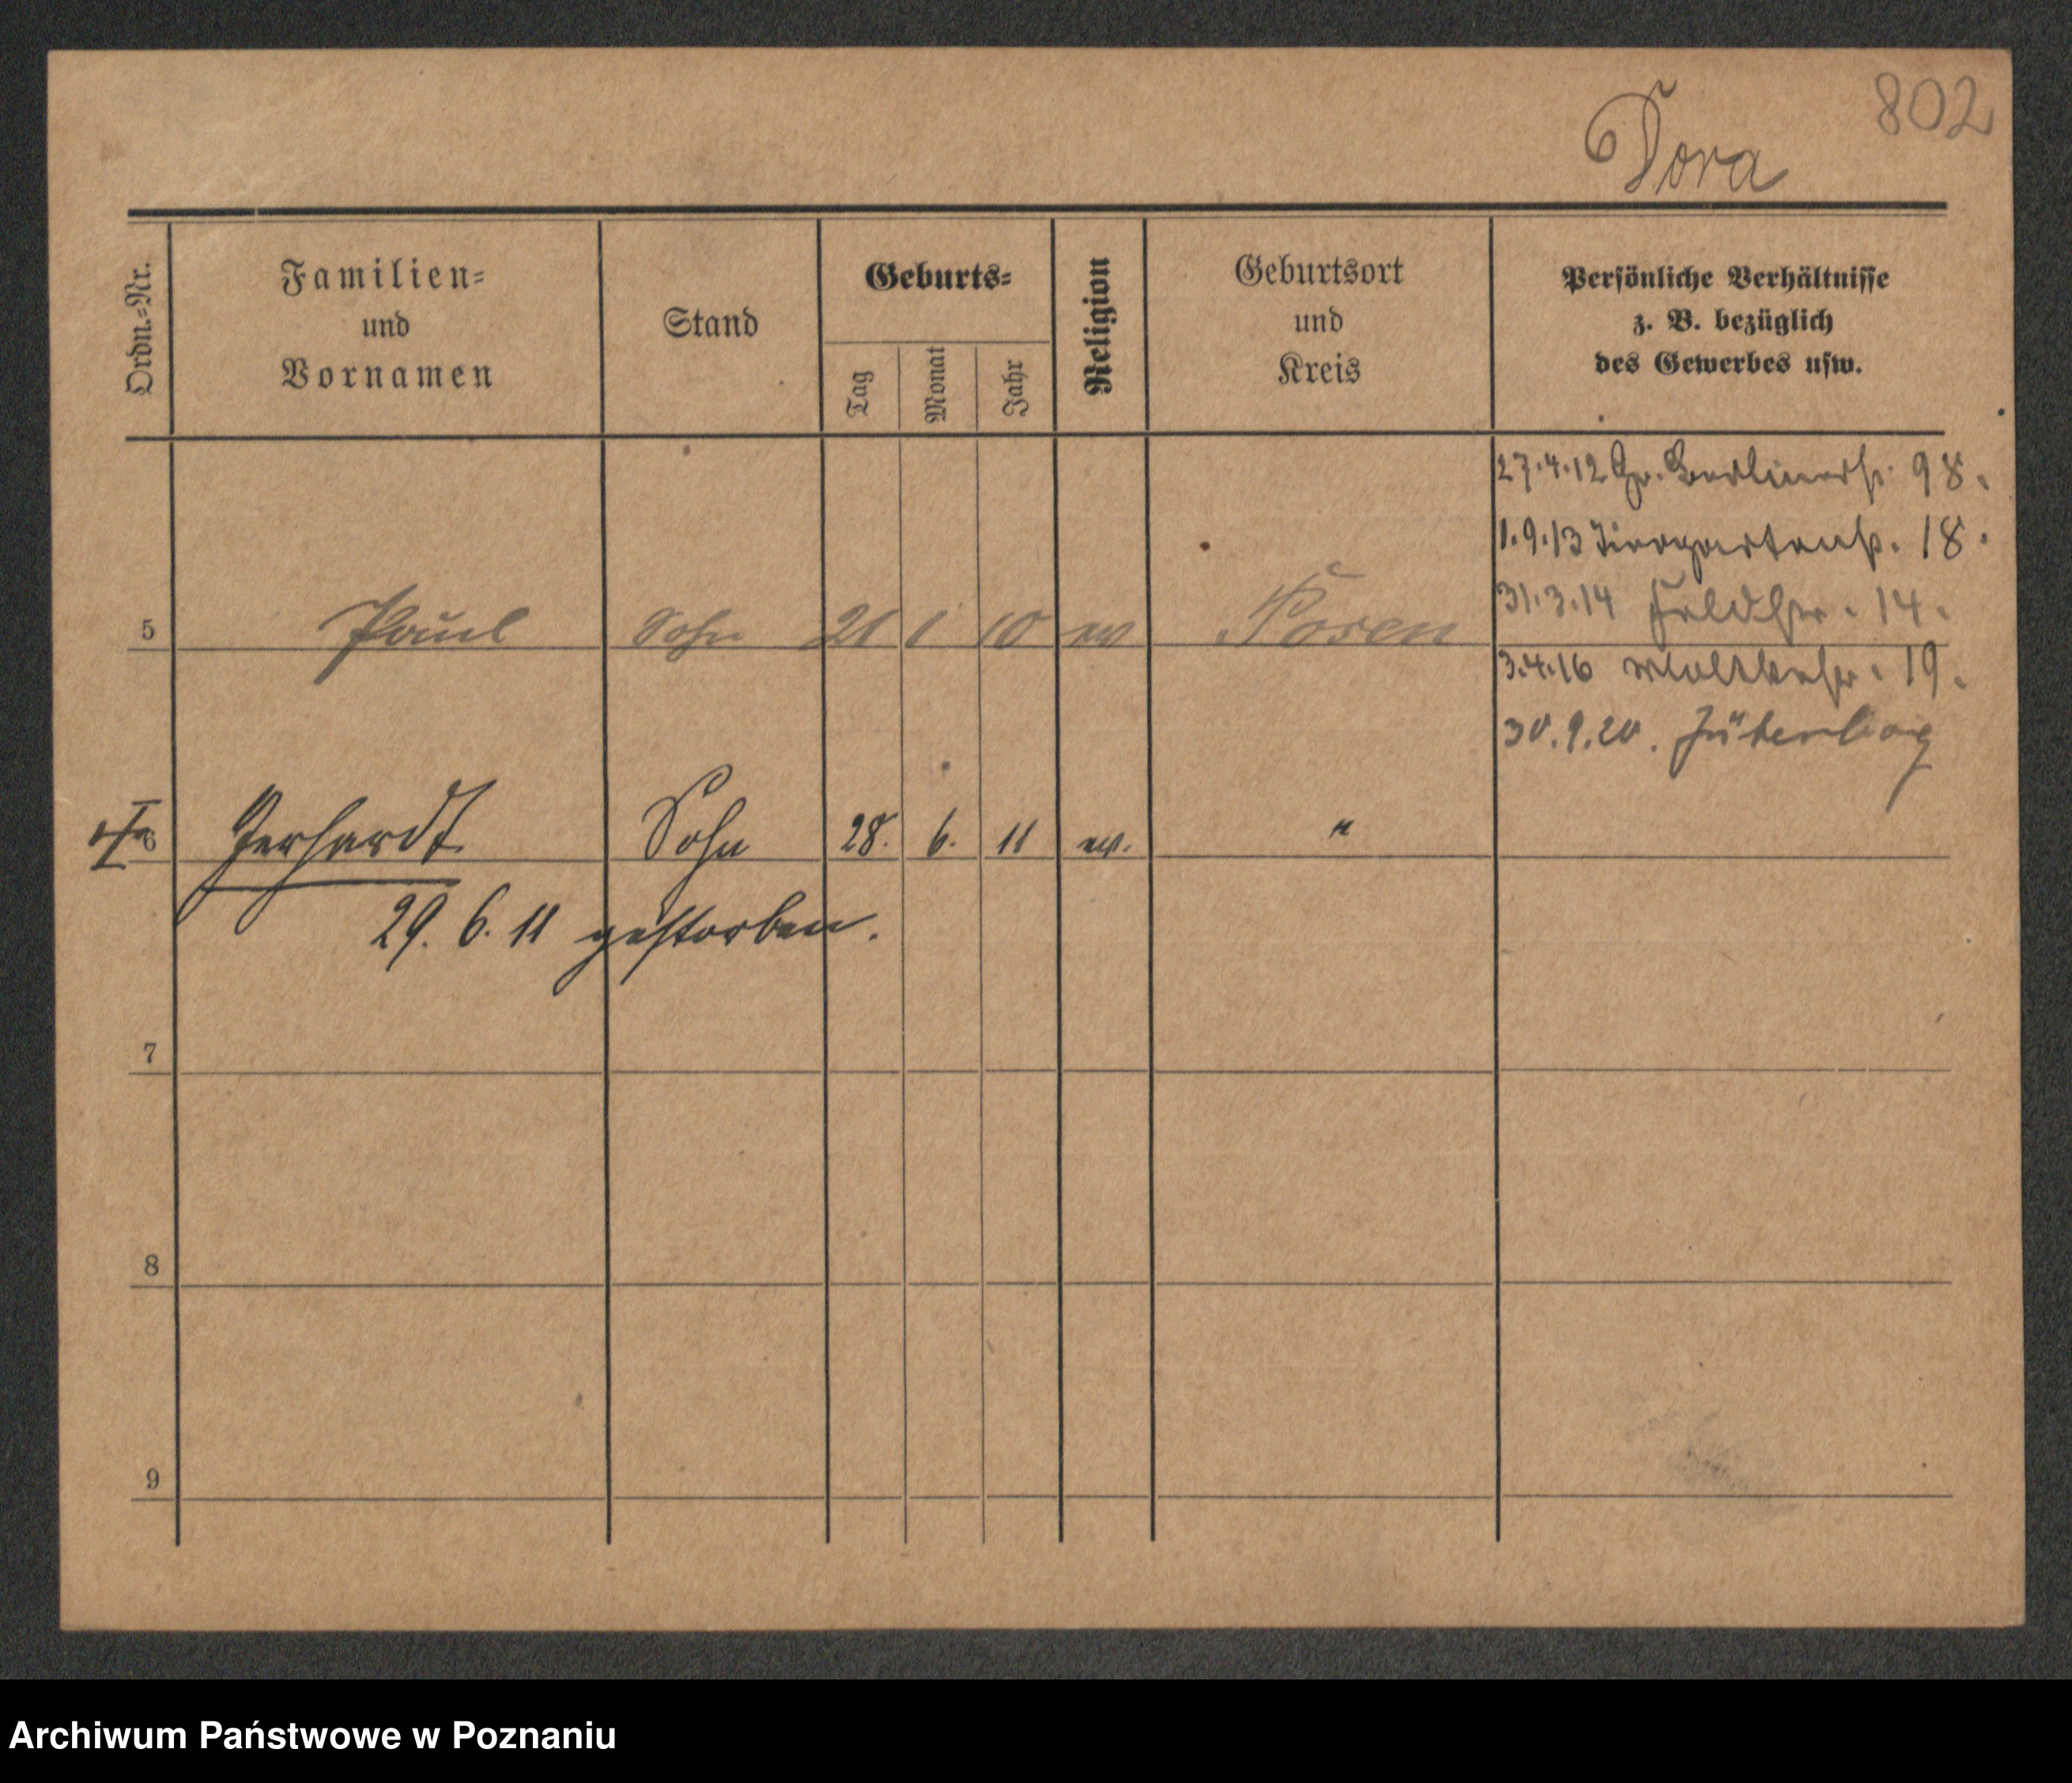 802
Tora
Ordn.-Nr.
Familien-
und
Vornamen
Stand
Geburts-
Tag
Monat
Jahr
Religion
Geburtsort
und
Kreis
Persönliche Verhältnisse
z. B. bezüglich
des Gewerbes usw.
27.4.12 Gr. Berlinerstr. 98.
1.9.13 Tiergartenstr. 18.
31.3.14 Feldstr. 14.
5 Paul Sohn 21 1 10 ev Posen
3.4.16 Moltkestr. 19.
30.9.20. Jüterbog
6 Gerhardt Sohn 28. 6. 11 ev. "
29. 6. 11 gestorben.
7
8
9
Archiwum Państwowe w Poznaniu